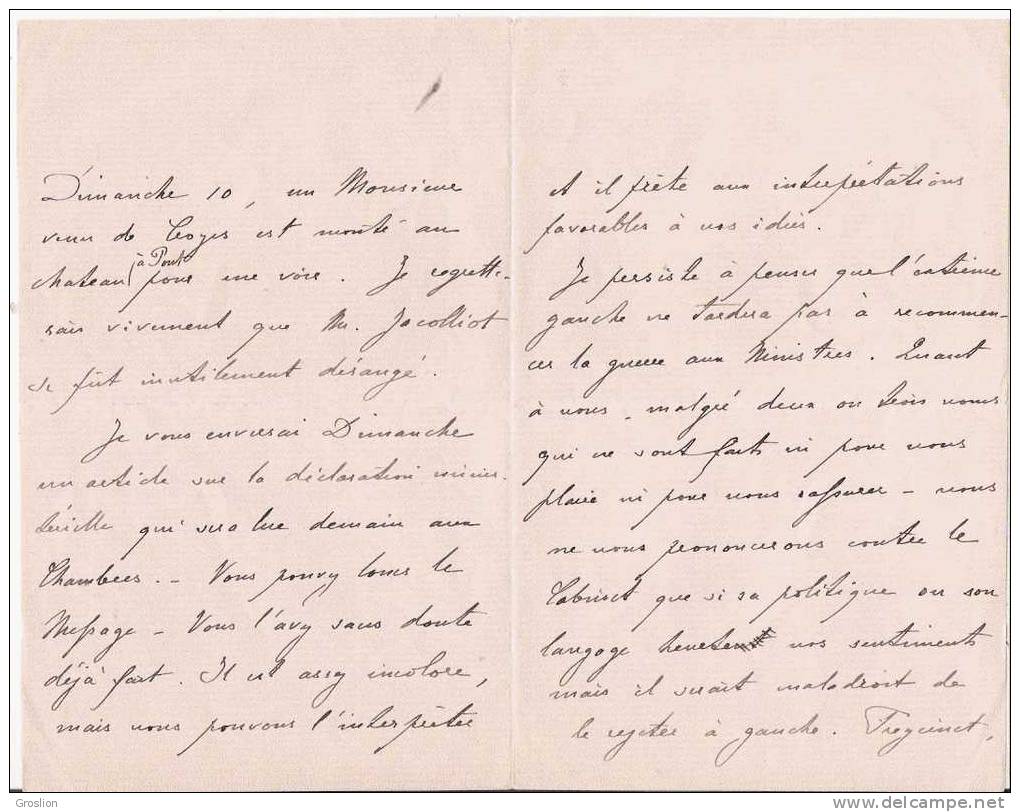 Dimanche 10, un Monsieur
venu de Troyes est monté au
chateau à Pont pour me voir. Je regrette-
rais vivement que Mr. Jacolliot
se fût inutilement dérangé.
Je vous enverrai Dimanche
un article sur la déclaration minis-
térielle qui sera lue demain aux
Chambres. - Vous pouvez louer le
Message - Vous l'avez sans doute
déjà fait. Il est assez incolore,
mais nous pouvons l'interpréter
et il prête aux interprétations
favorables à nos idées.
Je persiste à penser que l'extrême
gauche ne tardera pas à recommen-
cer la guerre aux Ministres. Quant
à nous, malgré deux ou trois noms
qui ne sont faits ni pour nous
plaire ni pour nous rassurer - nous
ne nous prononcerons contre le
Cabinet que si sa politique ou son
langage heurtent nos sentiments
mais il serait maladroit de
le rejeter à gauche. Freycinet,
Groslion
www.delcampe.net